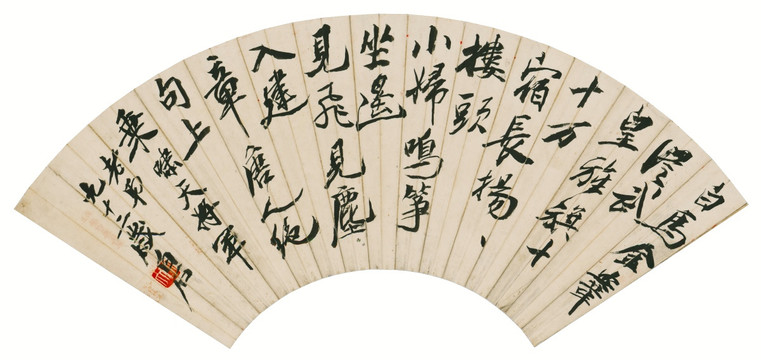 白馬金
從武
皇旌旗十
十万
宿長揚、
樓頭
小婦鳴箏
坐遙
見飛見塵
入建
章唐人絕
句上
嘯天將軍
老弟
九十三歲白石